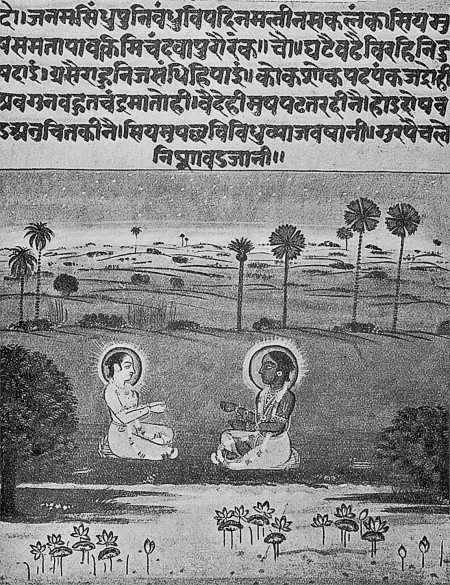 दो।जनमसिंधुपुनिवंधुविषदिनमलीनसकलंक।सियमु
षसमतापावकिमिचंदवापुरोरंक॥चौ॥घटैवढैविरहिनिदु
षदाई।ग्रसैराहुनिजसंधिहिपाई।कोकशोकप्रदपंकजद्रोही
अवगुनवहुतचंद्रमातोही।वैदेहीमुषपटतरदीनै।होइदोषव
डअनुचितकीनै।सियमुषछविविधुव्याजवषानी।गुरपैचले
निशावडजानी॥